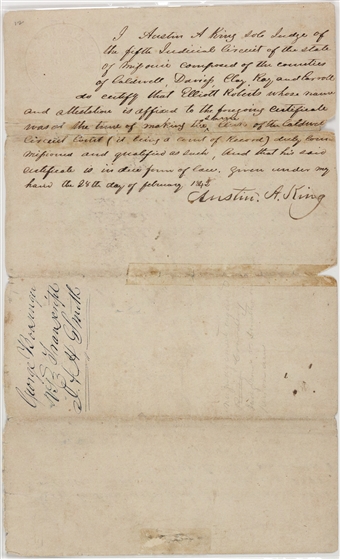 I Austin A King sole Judge of
the fifth Judicial Circuit of the state
of composed of the counties
of Caldwell Clay Ray and
do certify that Elliott whose name
and attestation is affixed to the foregoing certificate
was at the time of making the same Clerk of the Caldwell
Circuit Court (it being a court of Record) duly Com
missioned and qualified as such, And that his said
certificate is in due form of law. Given under my
hand the 24th day of february 1842
Austin. A. King
George
Transcript
Smith